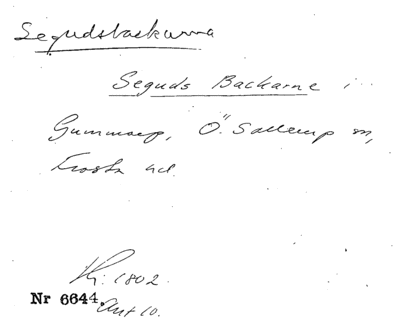 Segudsbackarna
Seguds Backarne i
Gummarp, Ö. Sallerup sn,
Frosta hd.
1802.
Nr 6644. Ant 10.